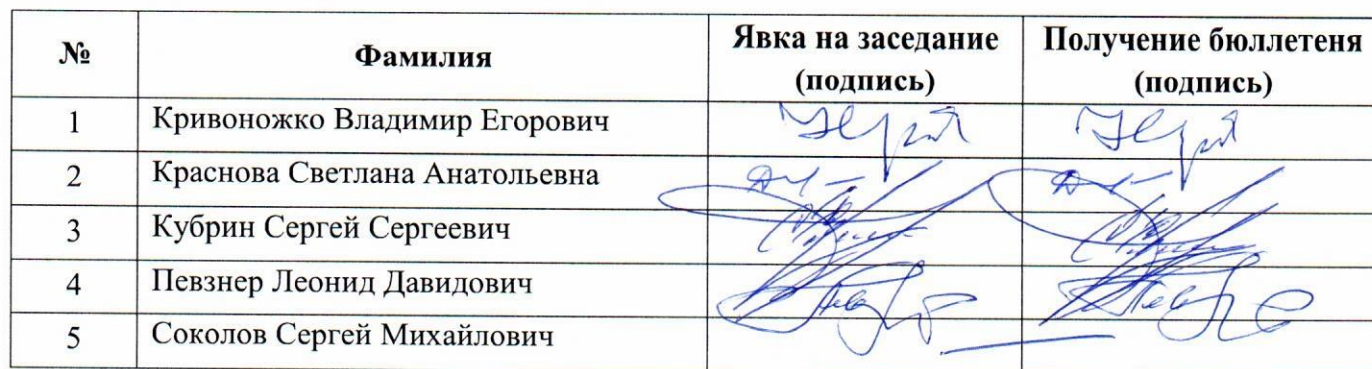 № Фамилия Явка на заседание (подпись) Получение бюллетеня (подпись)
1 Кривоножко Владимир Егорович
2 Краснова Светлана Анатольевна
3 Кубрин Сергей Сергеевич
4 Певзнер Леонид Давидович
5 Соколов Сергей Михайлович